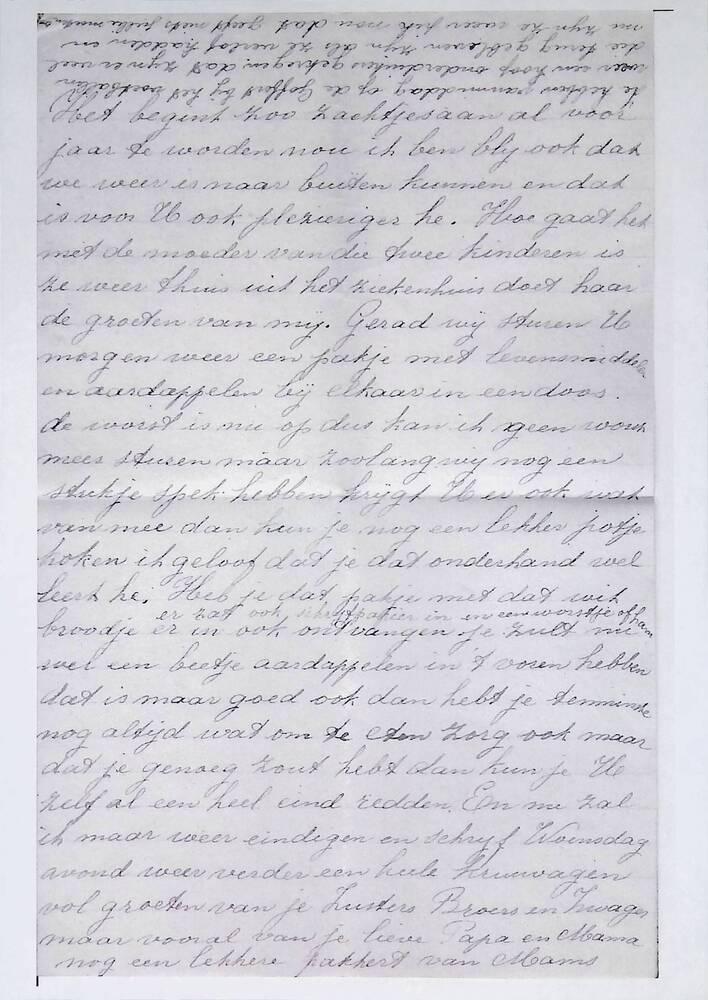 de hebben vanmiddag op de Goffert by het voetballen
weer een hoop onderduikers gekregen dat zyn er veel
die terug gebleven zyn als ze verlof hadden en
nu zyn ze weer nou dat geeft niets jullie
Het begint zoo zachtjesaan al voor
jaar te worden nou ik ben bly ook dat
we weer is naar buiten kunnen en dat
is voor U ook plezieriger he. Hoe gaat het
met de moeder van die twee kinderen is
ze weer thuis uit het ziekenhuis doet haar
de groeten van my. Gerad wy sturen U
morgen weer een pakje met levensmiddelen
en aardappelen bij elkaar in een doos.
de worst is nu op dus kan ik geen worst
meer sturen maar zoolang wy nog een
stukje spek hebben krygt U er ook wat
van mee dan kun je nog een lekker potje
koken ik geloof dat je dat onderhand wel
leert he. Heb je dat pakje met dat wit
er zat ook schryfpapier in en een worstje of ham
broodje er in ook ontvangen je zult nu
wel een beetje aardappelen in 't voren hebben
dat is maar goed ook dan hebt je tenminste
nog altyd wat om te eten zorg ook maar
dat je genoeg zout hebt dan kun je U
zelf al een heel eind redden. En nu zal
ik maar weer eindigen en schryf Woensdag
avond weer verder een hele kruiwagen
vol groeten van je Zusters Broers en Zwager
maar vooral van je lieve Papa en Mama
nog een lekkere pakkert van Mams